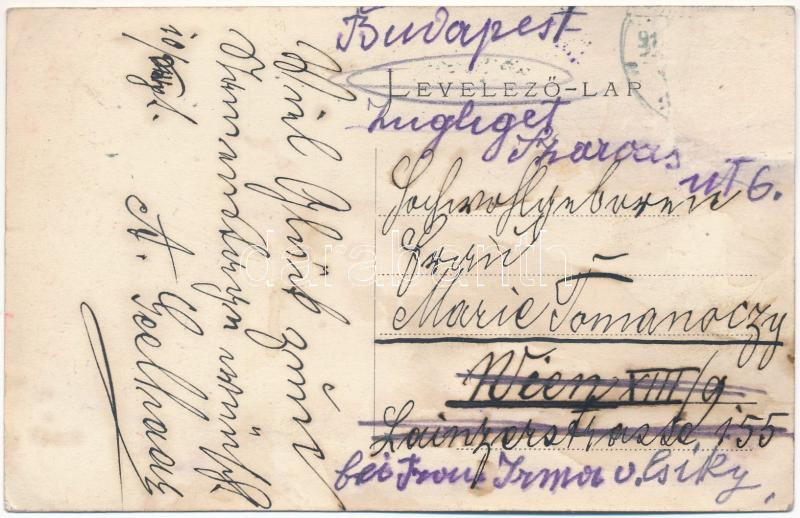 Budapest
LEVELEZŐ-LAP
Zugliget
Szarvas
út 6.
Hochwohlgeboren
Frau
Marie Tomanoczy
Wien XIII/9
Lainzerstrasse 155
bei Frau Irma v. Csiky.
Viel Glück zum
Namenstage wünscht
A. Seelhaas
darabanth
91